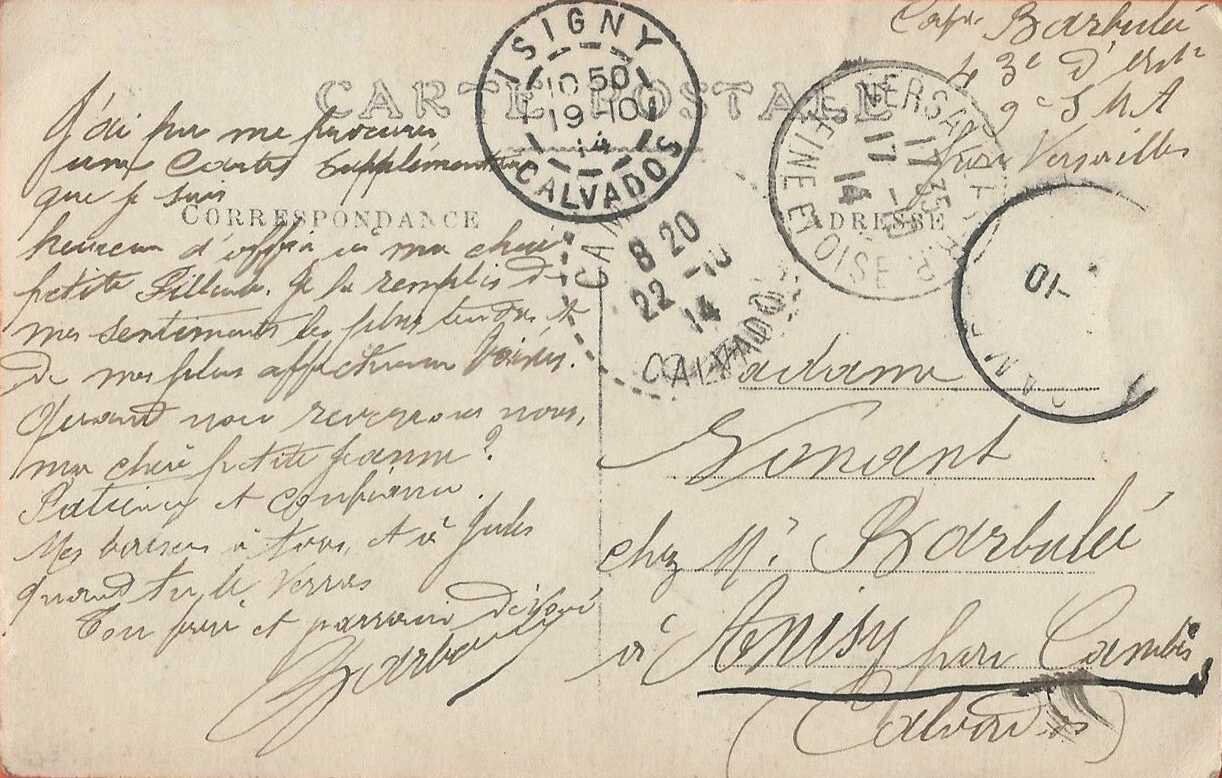 CARTE POSTALE
CORRESPONDANCE
J'ai pu me procurer
une Carte supplémentaire
que je suis
heureux d'offrir à ma chère
petite filleule. Je la remplis de
mes sentiments les plus tendres et
de mes plus affectueux baisers.
Quand nous reverrons nous,
ma chère petite Jeanne?
Patience et confiance.
Mes baisers à tous, et à Jules
quand tu le verras
Ton et parrain dévoué
Barbulée
ISIGNY
10 50
19-10
14
CALVADOS
CAM
8 20
22-10
14
CALVADOS
VERSAILLES
17 35
17-10
14
SEINE ET OISE
-10
CAM
ADRESSE
Barbulée
43e d'
9e S M A
Versailles
Madame
Nonant
chez Mr Barbulée
à Anisy par Cambes
(Calvados)